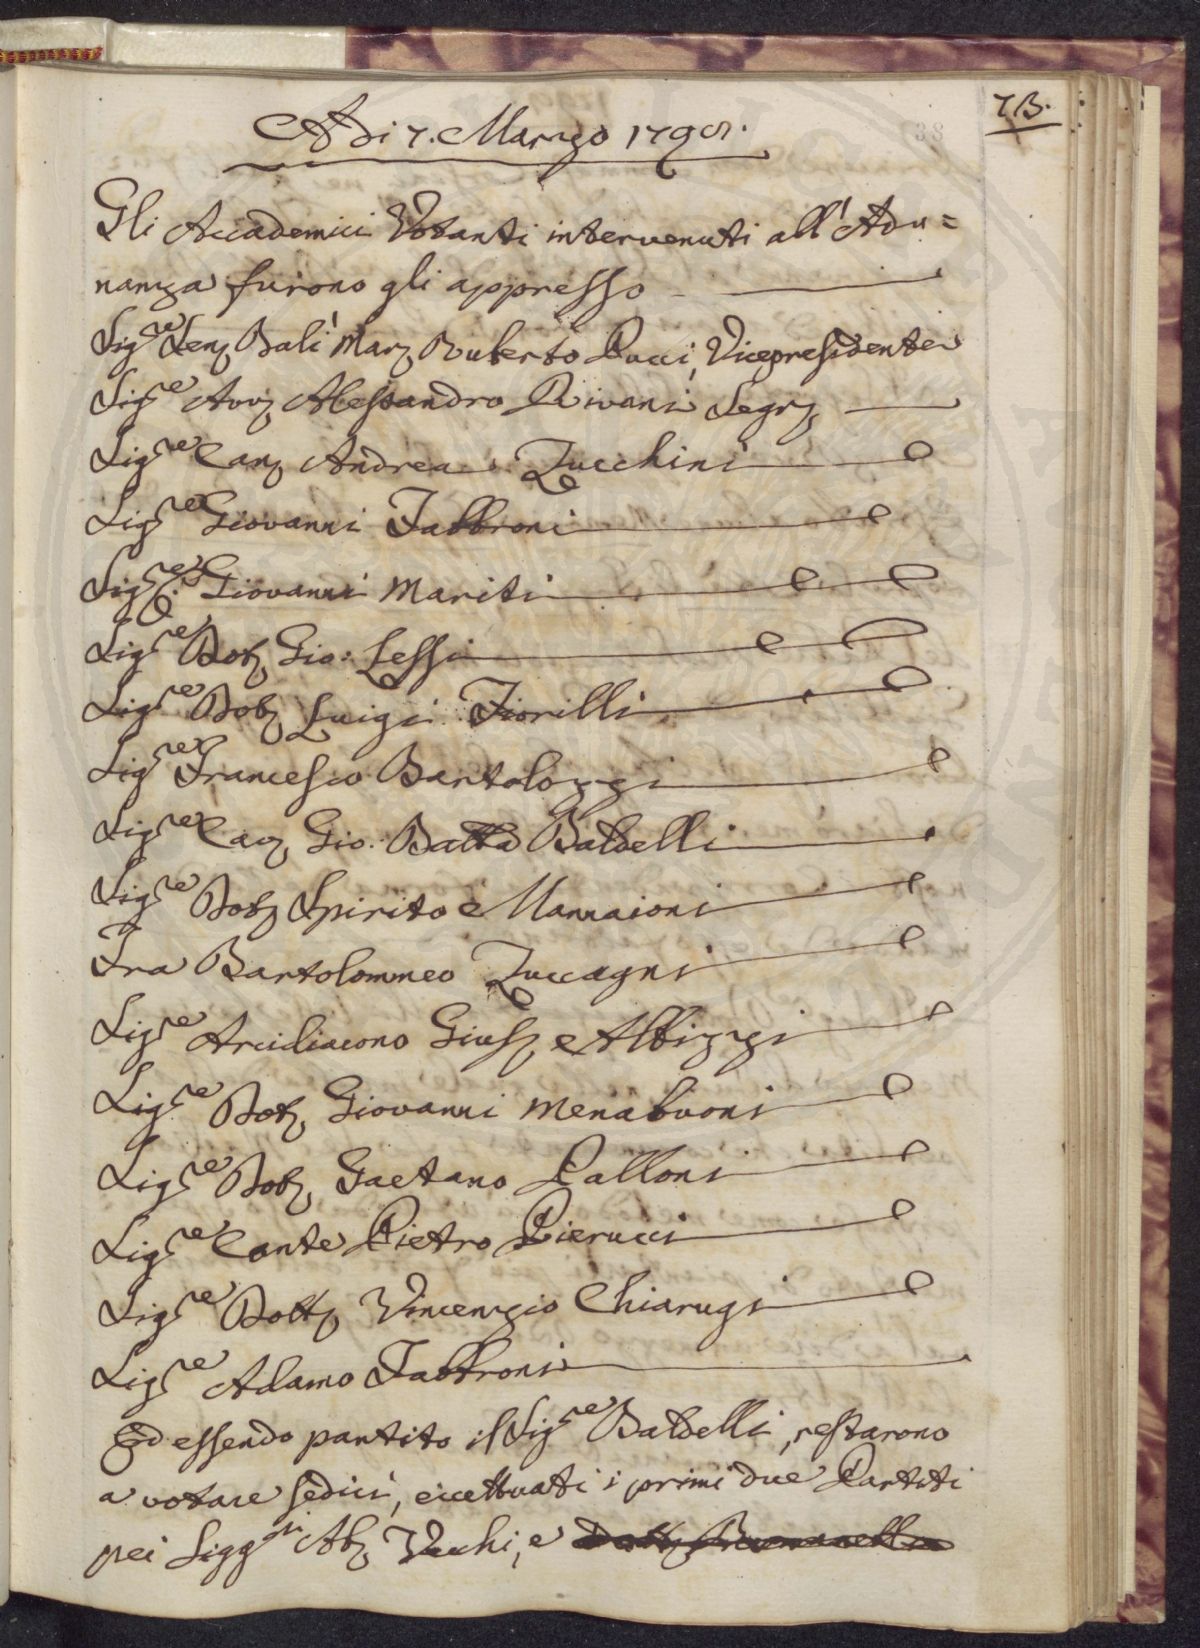 7B.
Adi 7. Marzo 1798.
38
Gli Accademici Votanti intervenuti all'Adu=
nanza furono gli appresso
Sig.re Sen. Balì Mar. Ruberto Pucci, Vicepresidente
Sig.re Avv. Alessandro Rivani Segr.
Sig.re Can. Andrea Zucchini
Sig.re Giovanni Fabbroni
Sig.re D. Giovanni Mariti
Sig.re Dot. Gio: Lessi
Sig.re Dot. Luigi Fiorilli
Sig.re Francesco Bartolozzi
Sig.re Cav. Gio: Batta Baldelli
Sig.re Dot. Spirito Mannaioni
Fra Bartolommeo Zuccagni
Sig.re Arcidiacono Gius. Albizzi
Sig.re Dot. Giovanni Menabuoni
Sig.re Dot. Gaetano Palloni
Sig.re Conte Pietro Pierucci
Sig.re Dott. Vincenzio Chiarugi
Sig.re Adamo Fabbroni
Ed essendo partito il Sig.re Baldelli, restarono
a votare sedici, eccettuati i primi due Partiti
pei Sigg.ri Ab. Vechi, e